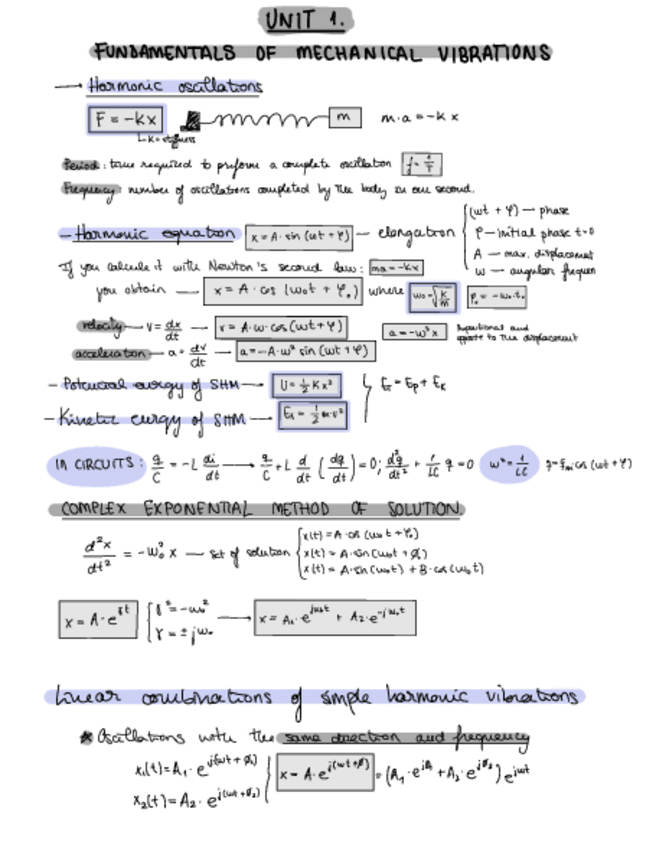 UNIT 1.
FUNDAMENTALS OF MECHANICAL VIBRATIONS
→ Harmonic oscillations
F = -kx m m·a = -k x
K = stiffness
Period: time required to preform a complete oscillation f = 1/T
Frequency: number of oscillations completed by the body in one second.
- Harmonic equation x = A·sin (ωt + φ) — elongation
(ωt + φ) — phase
φ — initial phase t=0
A — max. displacement
ω — angular frequen
If you calculate it with Newton's second law: ma = -kx
you obtain — x = A · cos (ω₀t + φ₀) where ω₀ = √(K/m) φ₀ = -ω₀·t₀
velocity — v = dx/dt — v = A·ω·cos (ωt + φ) a = -ω²x and to the displacement
acceleration — a = dv/dt — a = -A·ω² sin (ωt + φ)
- Potencial energy of SHM — U = 1/2 K x² E = Ep + Ek
- Kinetic energy of SHM — Ek = 1/2 m·v²
IN CIRCUITS: q/C = -L di/dt → q/C + L d/dt (dq/dt) = 0; d²q/dt² + 1/LC q = 0 ω² = 1/LC q = qm cos (ωt + φ)
COMPLEX EXPONENTIAL METHOD OF SOLUTION
d²x/dt² = -ω₀² x — set of solution
x(t) = A·cos (ω₀t + φ₀)
x(t) = A·sin (ω₀t + ϕ)
x(t) = A·sin (ω₀t) + B·cos (ω₀t)
x = A·e^γt γ² = -ω₀² → x = A₁·e^jω₀t + A₂·e^-jω₀t
γ = ± jω₀
Linear combinations of simple harmonic vibrations
* Oscillations with the same direction and frequency
x₁(t) = A₁ · e^j(ωt + ϕ₁) x = A·e^j(ωt+ϕ) = (A₁·e^jϕ₁ + A₂·e^jϕ₂) e^jωt
x₂(t) = A₂ · e^j(ωt + ϕ₂)